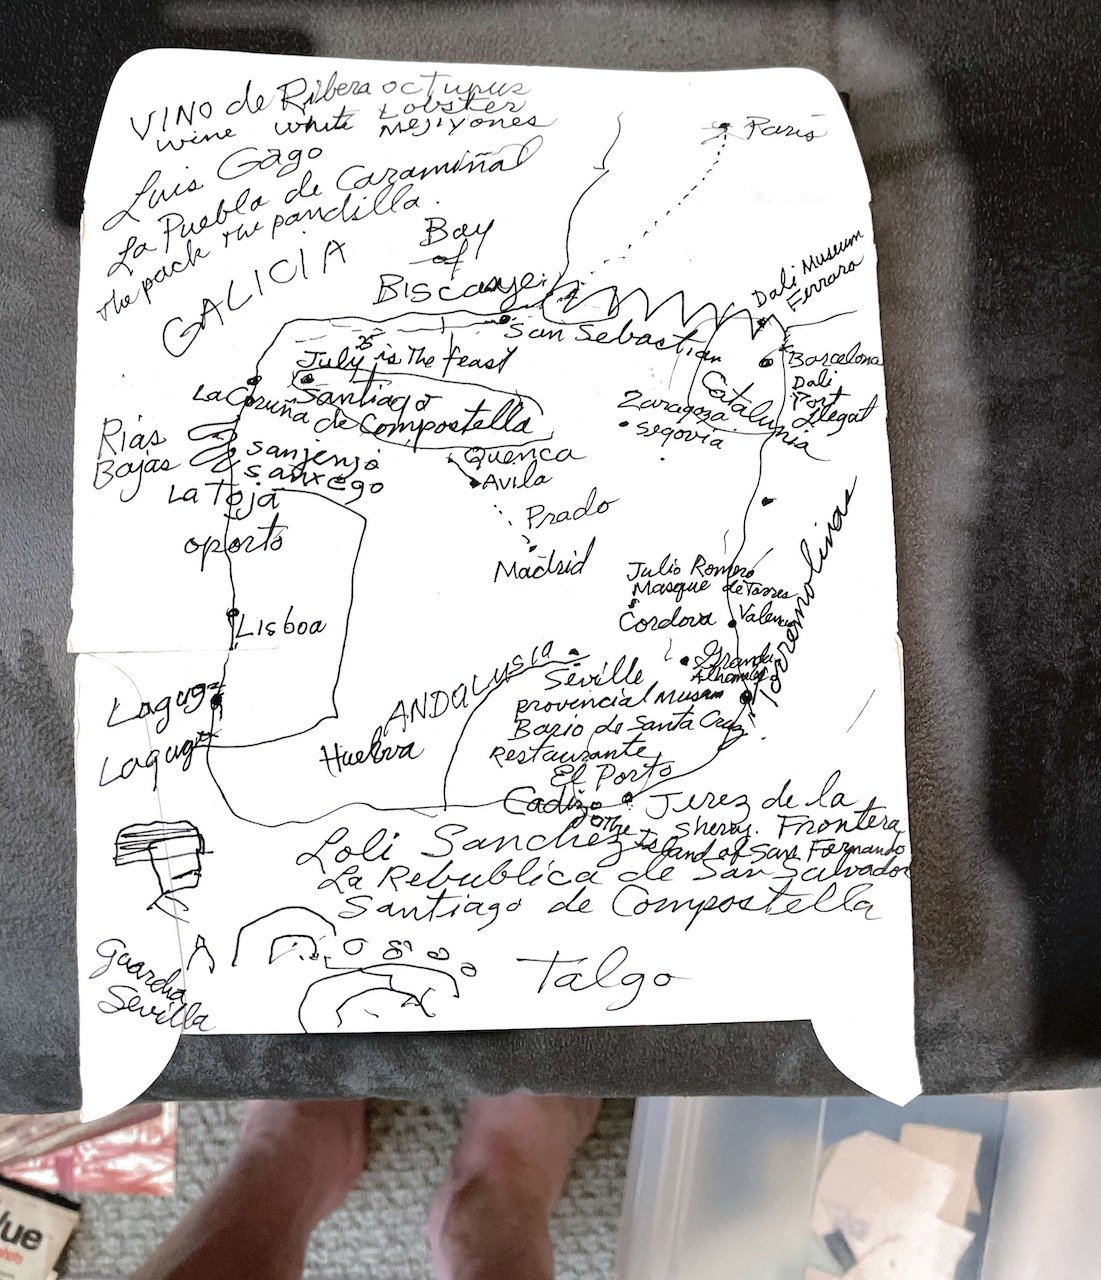 VINO de Ribera octupus
wine white Lobster
Mejiyones
Luis Gago
La Puebla de Caramiñal
the pack the pandilla.
GALICIA
Bay
of
Biscaye
Paris
Dali Museum
Ferrara
San Sebastian
July 25 is The feast
Santiago
de Compostella
La Coruña
Barcelona
Dali
Port
Llegat
Catalunia
Zaragoza
Segovia
Rias
Bajas
Sanjenjo
Sanxego
La Toja
Quenca
Avila
Prado
Madrid
oporto
Lisboa
Julio Romero
Masque de Torres
Cordova
Valencia
Torremolinas
Granda
Alhambra
ANDALUSIA
Seville
provincial Museum
Bario de Santa Cruz
Restaurante
El Porto
Huelva
Lagug
Lagug
Cadiz
Jerez de la
Sherry. Frontera
the Island of San Fernando
Loli Sanchez
La Rebublica de San Salvador
Santiago de Compostella
Talgo
Guardia
Sevilla
lue